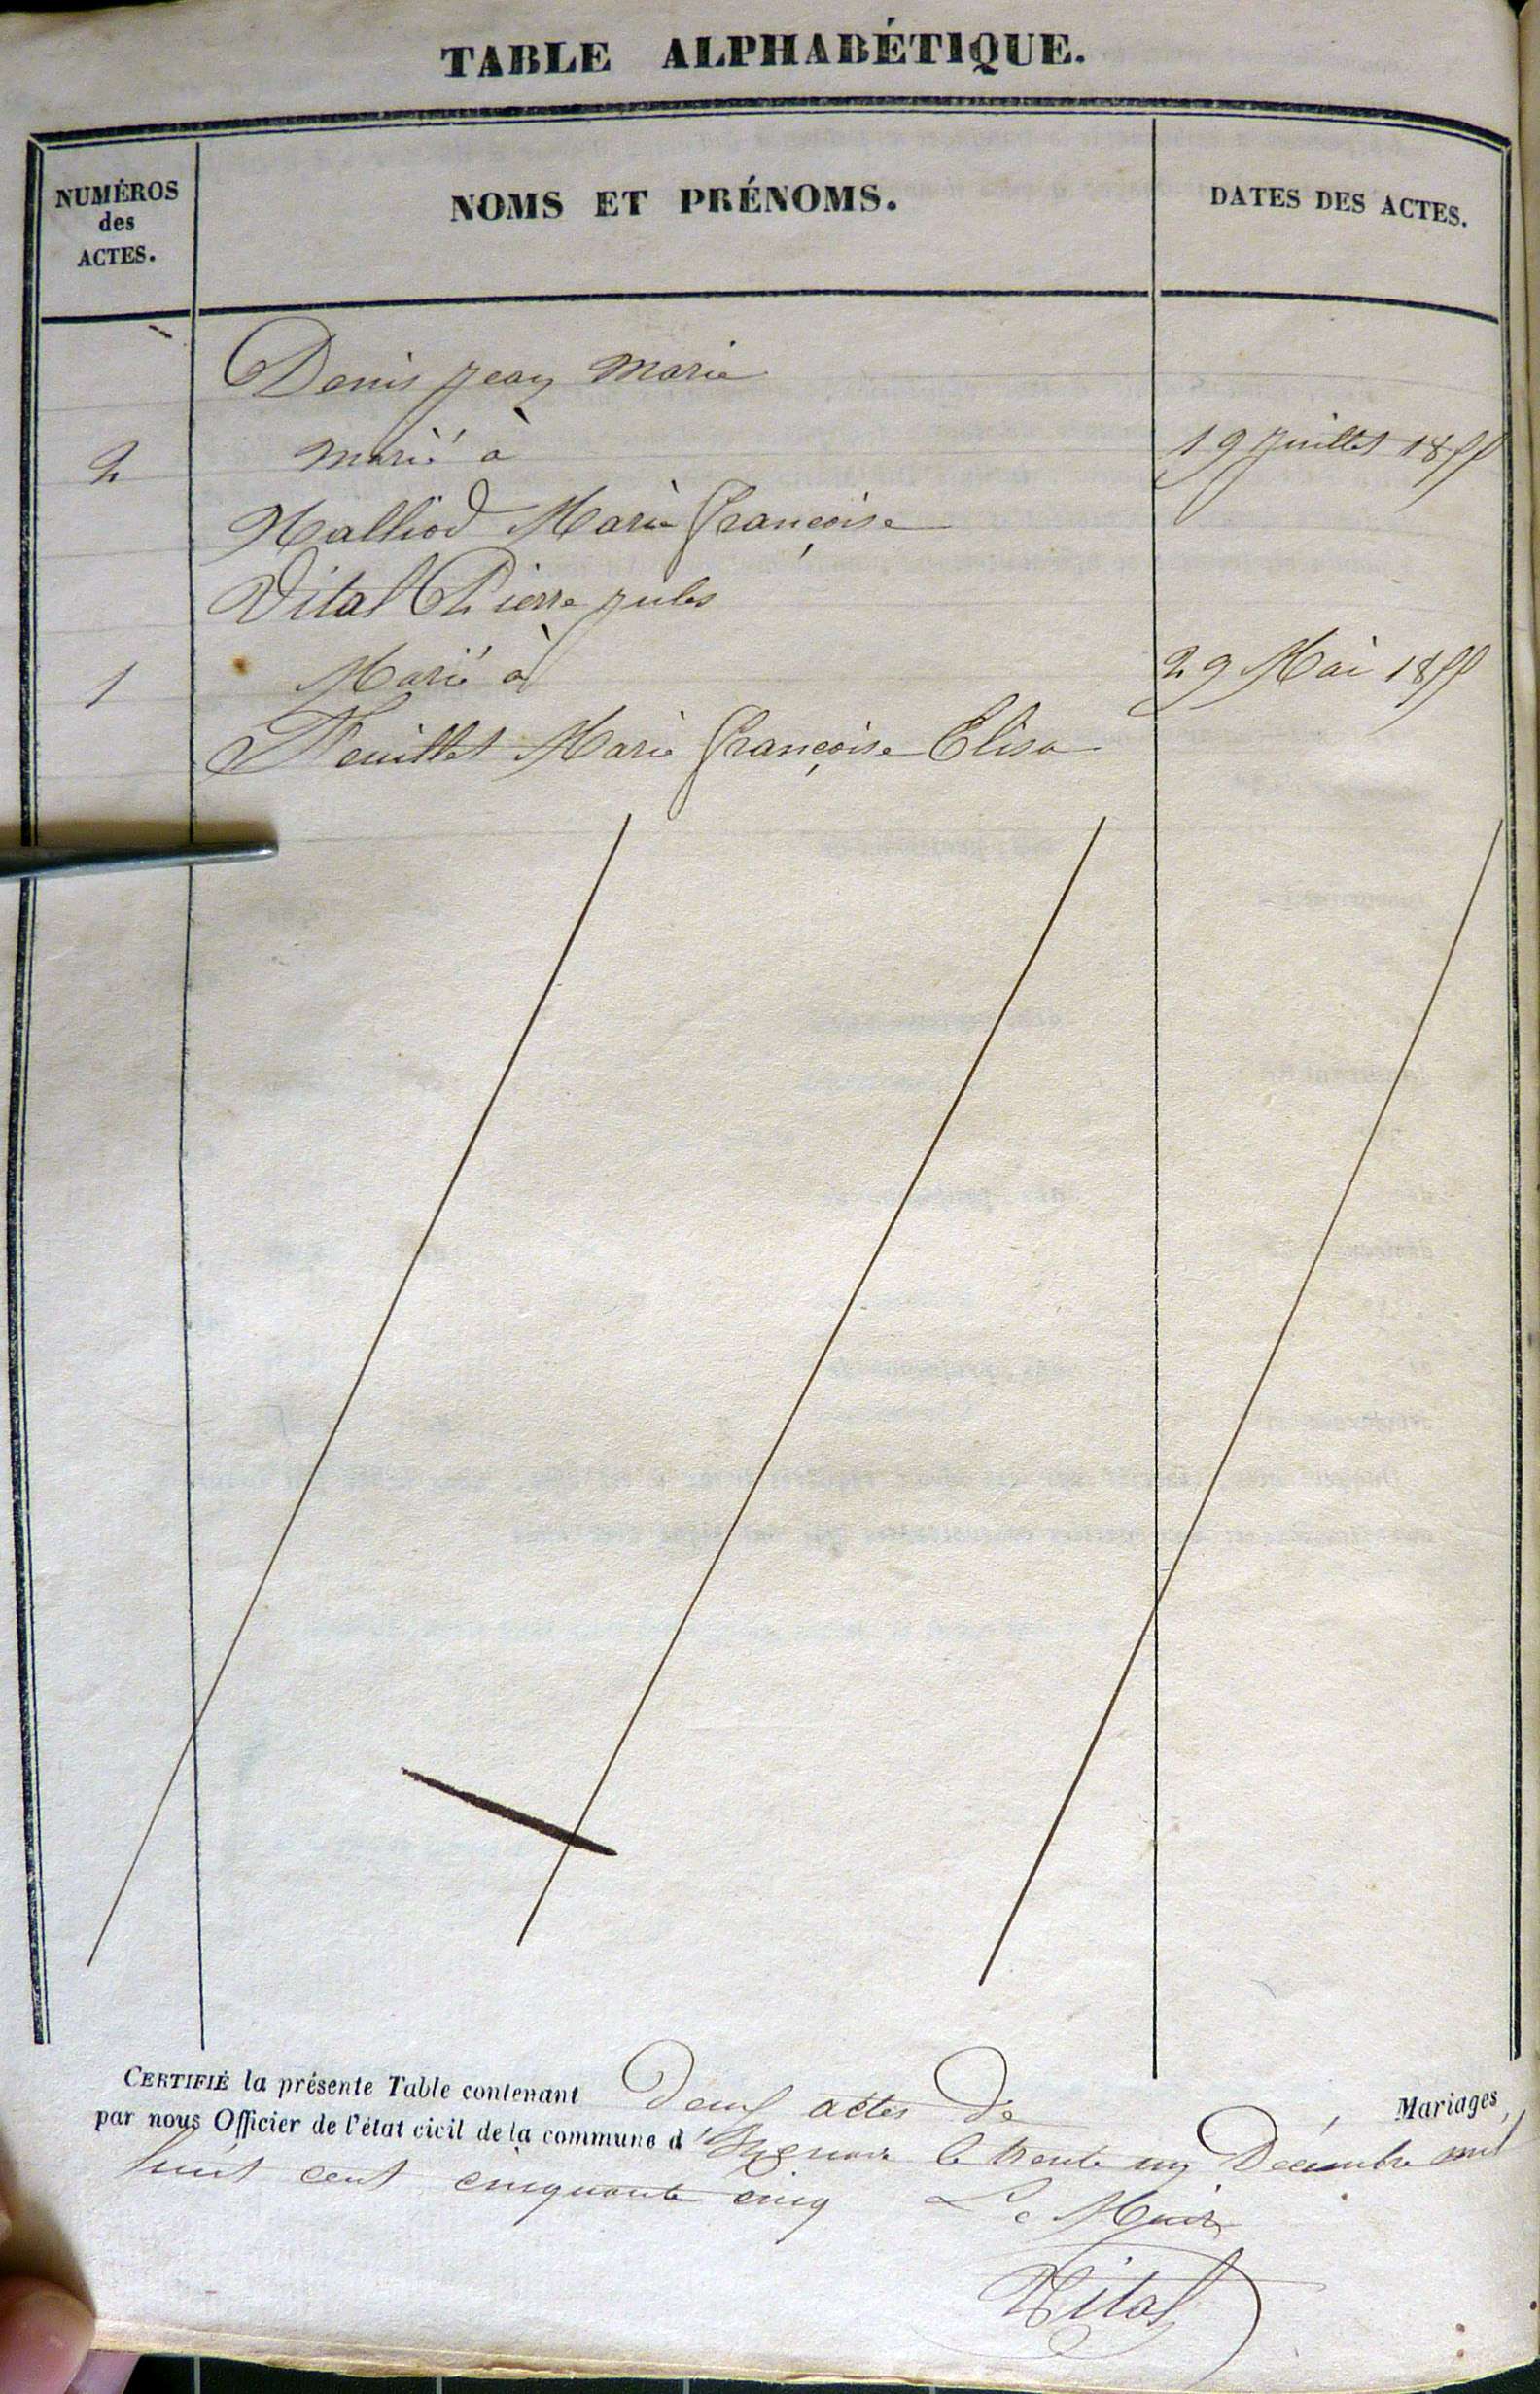 TABLE ALPHABÉTIQUE.
NUMÉROS
des
ACTES.
NOMS ET PRÉNOMS.
DATES DES ACTES.
Denis jean Marie
2 Marié à 19 juillet 1855
Halliod Marie françoise
Vital Pierre jules
1 Marié à 29 Mai 1855
Feuillet Marie françoise Elisa
CERTIFIÉ la présente Table contenant deux actes de Mariages,
par nous Officier de l'état civil de la commune d' le trente un Décembre mil
huit cent cinquante cinq Le Maire
Vital